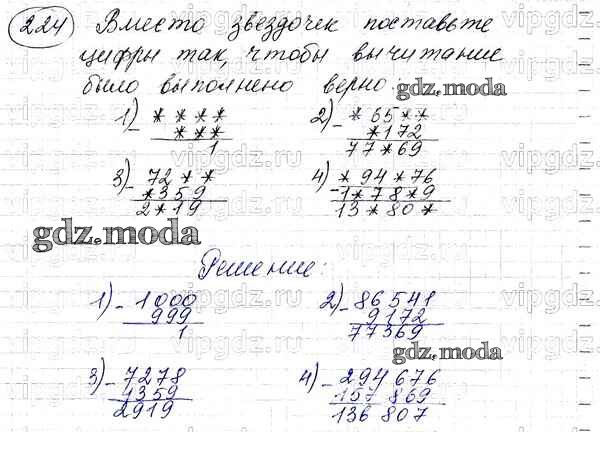 224 Вместо звездочек поставьте
цифры так, чтобы вычитание
было выполнено верно:
gdz.moda
1) - * * * *
* * *
1
2) - * 65 * *
* 172
77 * 69
3) - 72 * *
* 359
2 * 19
4) - * 94 * 76
1 * 78 * 9
13 * 80 *
gdz.moda
Решение:
1) - 1000
999
1
2) - 86541
9172
77369
gdz.moda
3) - 7278
4359
2919
4) - 294 676
157 869
136 807